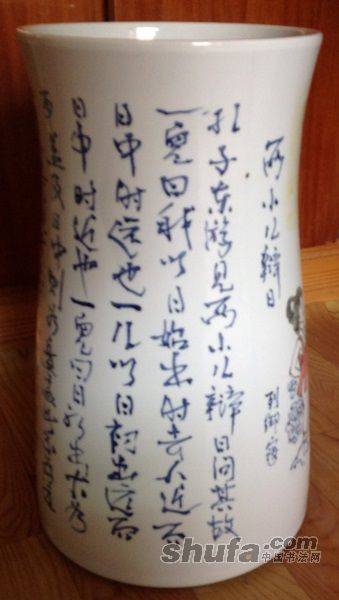 两小儿辩日
列御寇
孔子东游见两小儿辩日问其故
一兒曰我以日始出时去人近而
日中时远也一儿以日初出远而
日中时近也一兒曰日初出大如
及日中则
shufa.com
中国书法网